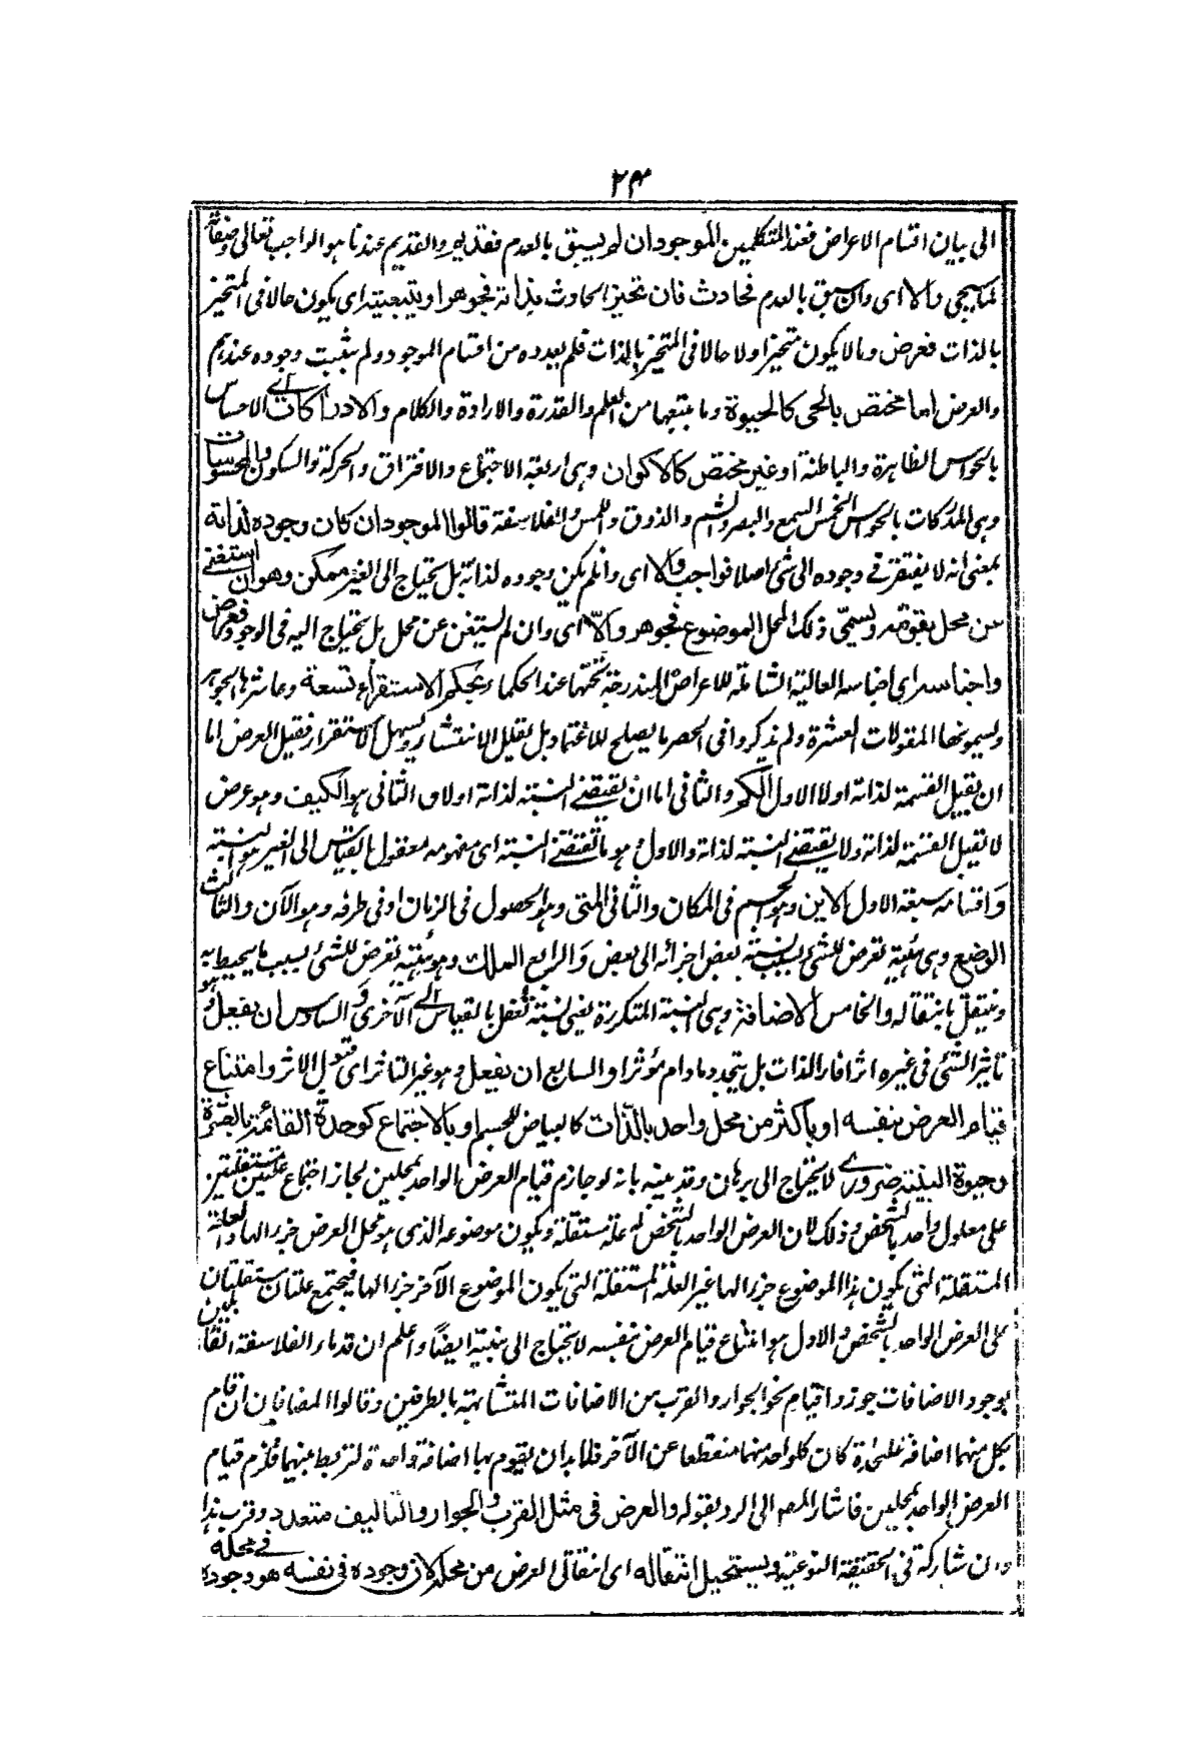 ٢٤
الى بيان اقسام الاعراض فعند المتكلمين الموجود ان لم يسبق بالعدم فقديم والقديم عندنا هو الواجب تعالى وصفاته
لما سيجئ والا اى وان سبق بالعدم فحادث فان تحيز الحادث بذاته فجوهر او بتبعيته اى يكون حالا فى المتحيز
بالذات فعرض وما لا يكون متحيزا ولا حالا فى المتحيز بالذات فلم يعدده من اقسام الموجود ولم يثبت وجوده عندهم
والعرض اما مختص بالحى كالحيوة وما يتبعها من العلم والقدرة والارادة والكلام والادراكات اے الاحساس
بالحواس الظاهرة والباطنة او غير مختص كالاكوان وهى اربعة الاجتماع والافتراق والحركة والسكون والمحسوسات
وهى المدركات بالحواس الخمس السمع والبصر والشم والذوق واللمس والفلاسفة قالوا الموجود ان كان وجوده لذاته
بمعنى انه لا يفتقر فے وجوده الى شئ اصلا فواجب والا اى وان لم يكن وجوده لذاته بل يحتاج الى الغير ممكن وهو ان استغنے
عن محل يقومه ويسمى ذلك المحل الموضوع فجوهر والّا اى وان لم يستغن عن محل بل يحتاج اليه فى الوجود فعرض
واجناسه اى اجناسه العالية الشاملة للاعراض المندرجة تحتها عند الحكماء بحكم الاستقراء تسعة وعاشرها الجوهر
ويسمونها المقولات العشرة ولم يذكروا فى الحصر ما يصلح للاعتماد بل لتقليل الانتشار ويسهل الاستقرار فقيل العرض اما
ان يقبل القسمة لذاته اولا الاول الكم والثانى اما ان يقتضے النسبة لذاته اولا والثانى هو الكيف وهو عرض
لا يقبل القسمة لذاته ولا يقتضے النسبة لذاته والاول هو ما تقتضے النسبة اى مفهومه معقول بالقياس الى الغير هو النسبة
واقسامه سبعة الاول الاين وهو الجسم فى المكان والثانى المتى وهو الحصول فى الزمان او فى طرفه وهو الآن والثالث
الوضع وهى هيئة تعرض للشئ بسبب نسبة بعض اجزائه الى بعض والرابع الملك وهو هيئة تعرض للشئ بسبب ما يحيط به
وينتقل بانتقاله والخامس الاضافة وهى النسبة المتكررة يعنى نسبة تعقل بالقياس الے الآخرى والسادس ان يفعل وهو
تاثير الشئ فى غيره اثرا قار الذات بل يتجدد ما دام مؤثرا والسابع ان ينفعل وهو غير التاثر اى قبول الاثر وامتناع
قيام العرض بنفسه او باكثر من محل واحد بالذات كالبياض للجسم او بالاجتماع كوحدة القائمة بالعشرة
وحيوة البنية ضرورے لا يحتاج الى برهان وقد ينبه بانه لو جاز قيام العرض الواحد بمحلين لجاز اجتماع علتين مستقلتين
على معلول واحد بالشخص وذلك لان العرض الواحد بالشخص له علة مستقلة ويكون موضوعه الذى هو محل العرض جزء الها والعلة
المستقلة التى يكون هذا الموضوع جزء الها غير العلة المستقلة التى يكون الموضوع الآخر جزء الها فيجتمع علتان مستقلتان
على العرض الواحد بالشخص والاول هو امتناع قيام العرض بنفسه لا يحتاج الى تنبيه ايضا واعلم ان قدماء الفلاسفة القائلين
بوجود الاضافات جوزوا قيام نحو الجوار والقرب من الاضافات المتشابهة بالطرفين وقالوا المضافان ان قام
بكل منهما اضافة عليحدة كان كل واحد منهما منقطعا عن الآخر فلا بد ان يقوم بها اضافة واحدة لتربط بينهما فلزم قيام
العرض الواحد بمحلين فاشار المصـ الى الرد بقوله والعرض فى مثل القرب والجوار والتاليف متعدد وقرب هذا
وان شاركه فى الحقيقة النوعية ويستحيل انتقاله اى انتقال العرض من محله لان وجوده فى نفسه هو وجوده فے محله